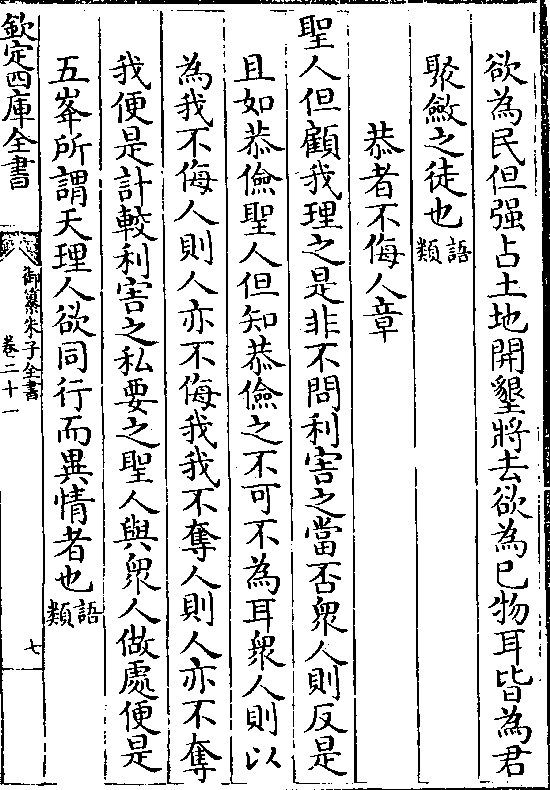 欲為民但强占土地開墾將去欲為已物耳皆為君
聚斂之徒也語類
恭者不侮人章
聖人但顧我理之是非不問利害之當否衆人則反是
且如恭儉聖人但知恭儉之不可不為耳衆人則以
為我不侮人則人亦不侮我我不奪人則人亦不奪
我便是計較利害之私要之聖人與衆人做處便是
五峯所謂天理人欲同行而異情者也語類
欽定四庫全書
御纂朱子全書
卷二十一
七